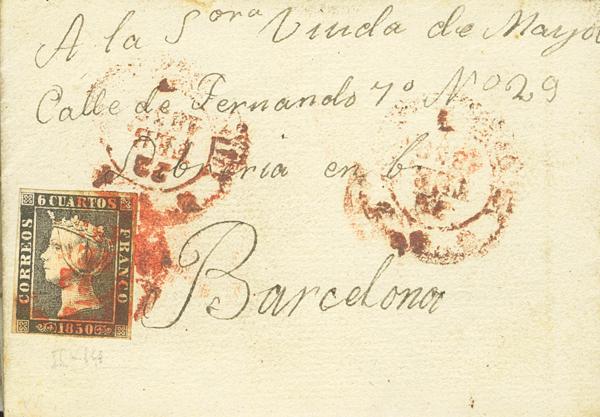 A la Sora Viuda de Mayol
Calle de Fernando 7o No 29
Libreria en
Barcelona
6 CUARTOS
CORREOS
FRANCO
1850